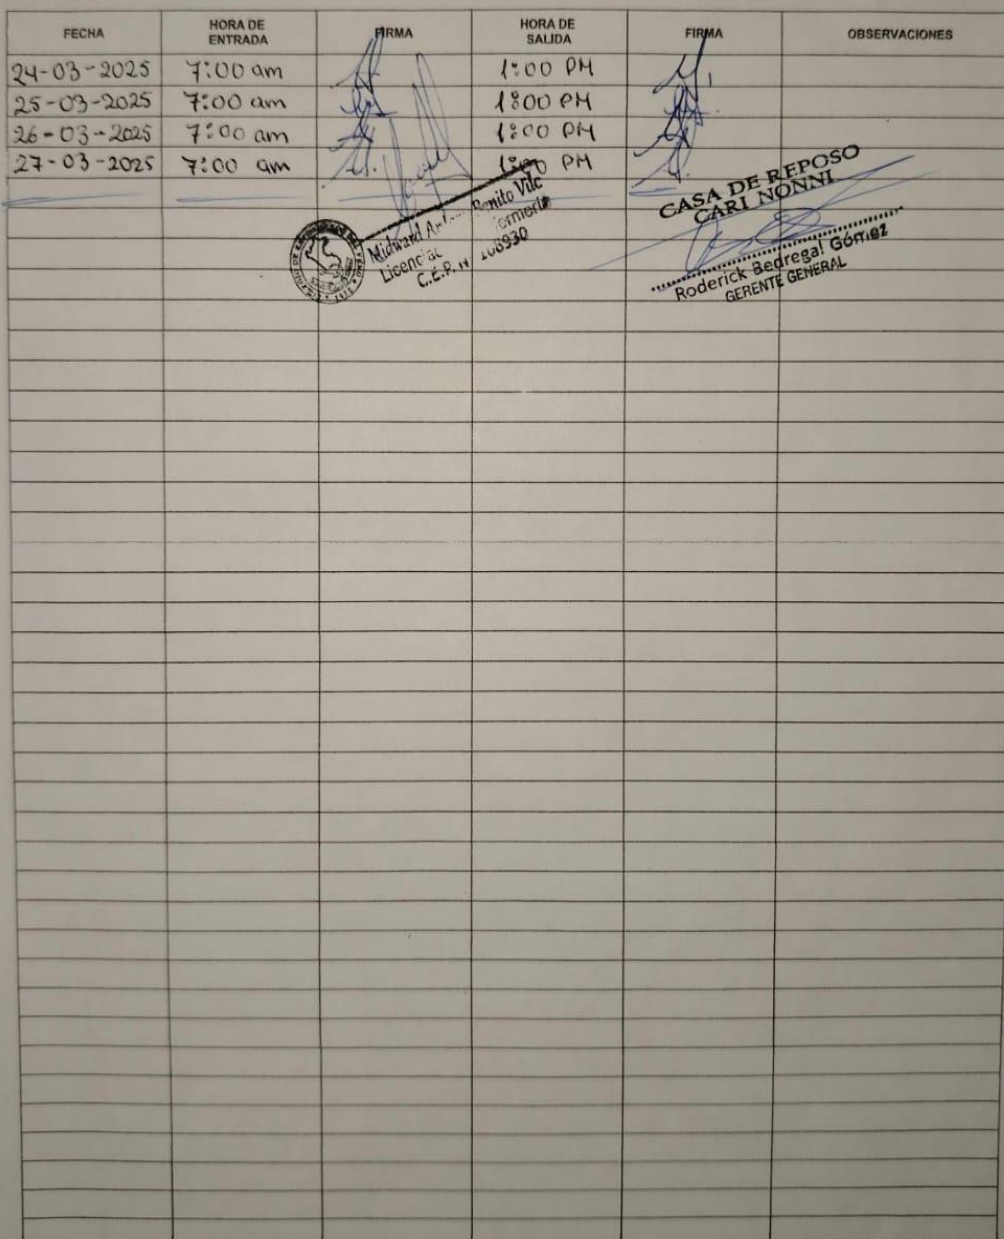 FECHA HORA DE ENTRADA FIRMA HORA DE SALIDA FIRMA OBSERVACIONES
24-03-2025 7:00 am 1:00 PM
25-03-2025 7:00 am 1:00 PM
26-03-2025 7:00 am 1:00 PM
27-03-2025 7:00 am 1:00 PM
Midward Benito Vilc
C.E.P. N 106930
CASA DE REPOSO
CARI NONNI
Roderick Bedregal Gómez
GERENTE GENERAL